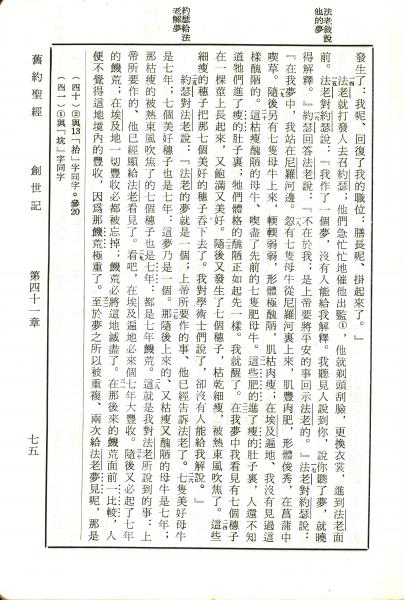 法老敘說
他的夢
約瑟給法
老解夢
發生了：我呢、回復了我的職位；膳長呢、掛起來了。』
法老就打發人去召約瑟；他們急忙忙地催他出監①，他就剃頭刮臉，更換衣裳，進到法老面
前。法老對約瑟說：『我作了一個夢，沒有人能給我解釋。我聽見人說到你，說你聽了夢，就曉
得解釋。』約瑟回答法老說：『不在於我；是上帝要將平安的事回示法老的。』法老對約瑟說：
『在我夢中，我站在尼羅河邊。忽有七隻母牛從尼羅河裏上來，肌豐肉肥，形體俊秀，在菖蒲中
喫草。隨後另有七隻母牛上來，輭輭弱弱，形體極醜陋，肌枯肉瘦；在埃及遍地、我沒有見過這
樣醜陋的。這枯瘦醜陋的母牛、喫盡了先前的七隻肥母牛。這些肥的進了瘦的肚子裏，人還不知
道牠們進了瘦的肚子裏；牠們體格的醜陋正如起先一樣。我就醒了。在我夢中我看見有七個穗子
在一棵莖上長起來，又飽滿又美好。隨後又發生了七個穗子，枯乾細瘦，被熱東風吹焦了。這些
細瘦的穗子把那七個美好的穗子吞下去了。我對學術士們說了，卻沒有人能給我解說。』
約瑟對法老說：『法老的夢就是一個；上帝所要作的事、他已經告訴法老了。七隻美好母牛
是七年；七個美好穗子也是七年；這夢乃是一個。那隨後上來的、又枯瘦又醜陋的母牛是七年；
那枯瘦的被熱東風吹焦了的七個穗子也是七年：都是七年饑荒。這就是我對法老所說到的事：上
帝所要作的、他已經顯給法老看見了。看吧，在埃及遍地必來個七年大豐收。隨後又必起了七年
的饑荒；在埃及地一切豐收必都被忘掉；饑荒必將這地滅盡了。在那後來的饑荒面前一比較，人
便不覺得這地境內的豐收，因爲那饑荒極重了。至於夢之所以被重複、兩次給法老夢見呢，那是
（四十）②與13「拾」字同字。參20
（四一）①與「坑」字同字
舊約聖經　創世記　第四十一章　七五